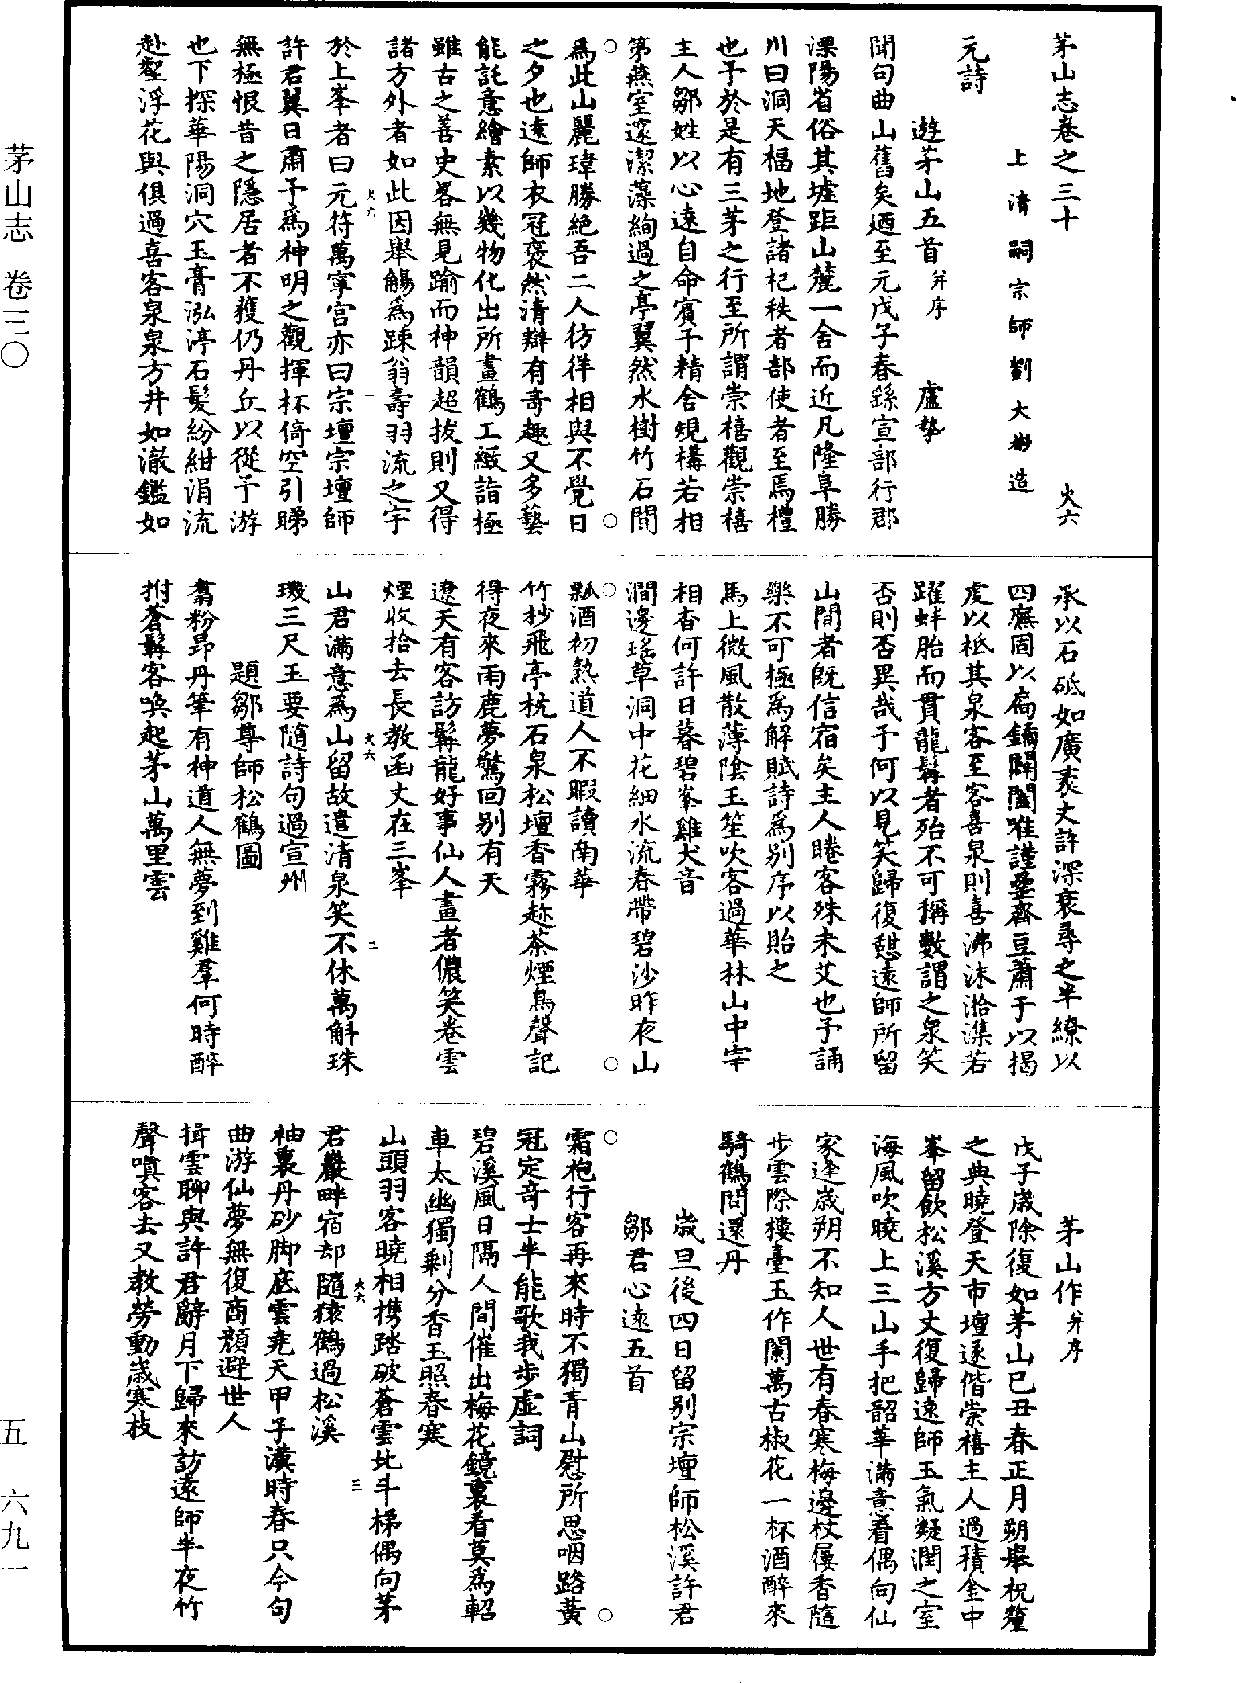 茅山志卷之三十
火六
上清嗣宗師劉大彬造
元詩
遊茅山五首并序
盧摯
聞句曲山舊矣迺至元戊子春繇宣部行郡
溧陽省俗其墟距山麓一舍而近凡隆阜勝
川曰洞天福地登諸杞秩者部使者至焉禮
也予於是有三茅之行至所謂崇禧觀崇禧
主人鄒姓以心遠自命賓予精舍規構若相
第燕室邃潔藻絢過之亭翼然水樹竹石間
爲此山麗瑋勝絶吾二人彷徉相與不覺日
之夕也遠師衣冠褒然清辯有奇趣又多藝
能託意繪素以幾物化出所畫鶴工緻詣極
雖古之善史畧無見踰而神韻超拔則又得
諸方外者如此因舉觴爲踈翁壽羽流之宇
火六
一
於上峯者曰元符萬寧宮亦曰宗壇宗壇師
許君翼日肅予爲神明之觀揮杯倚空引睇
無極恨昔之隱居者不獲仍丹丘以從予游
也下探華陽洞穴玉膏泓渟石髮紛紺涓流
赴壑浮花與俱過喜客泉泉方井如澈鑑如
承以石砥如廣袤丈許深衰尋之半繚以
四廡固以扃鐍闢闔唯謹壘齋豆蕭于以揭
虎以柢其泉客至客喜泉則喜沸沫湁潗若
躍蚌胎而貫龍髯者殆不可稱數謂之泉笑
否則否異哉予何以見笑歸復憇遠師所留
山間者旣信宿矣主人睠客殊未艾也予誦
樂不可極爲解賦詩爲别序以貽之
馬上微風散薄陰玉笙吹客過華林山中宰
相杳何許日暮碧峯雞犬音
澗邊瑤草洞中花細水流春帶碧沙昨夜山
瓢酒初熟道人不暇讀南華
竹杪飛亭枕石泉松壇香霧趂茶煙鳥聲記
得夜來雨鹿夢驚回别有天
遼天有客訪髯龍好事仙人畫者儂笑卷雲
煙收拾去長教函丈在三峯
火六
二
山君滿意爲山留故遣清泉笑不休萬斛珠
璣三尺玉要隨詩句過宣州
題鄒尊師松鶴圖
翥粉昂丹筆有神道人無夢到雞羣何時醉
拊蒼髯客喚起茅山萬里雲
茅山作并序
戊子歲除復如茅山已丑春正月朔舉祝釐
之典曉登天市壇遂偕崇禧主人過積金中
峯留飲松溪方丈復歸遠師玉氣凝潤之室
海風吹曉上三山手把韶華滿意看偶向仙
家逢歲朔不知人世有春寒梅邊杖屨香隨
步雲際樓臺玉作闌萬古椒花一杯酒醉來
騎鶴問還丹
歲旦後四日留别宗壇師松溪許君
鄒君心遠五首
霜袍行客再來時不獨青山慰所思咽路黃
冠定奇士半能歌我步虛詞
碧溪風日隔人間催出梅花鏡裏看莫爲軺
車太幽獨剩分香玉照春寒
山頭羽客曉相携踏破蒼雲北斗梯偶向茅
君巖畔宿却隨猿鶴過松溪
火六
三
袖裏丹砂脚底雲堯天甲子漢時春只今句
曲游仙夢無復商顏避世人
揖雲聊與許君辭月下歸來訪遠師半夜竹
聲嗔客去又教勞動歲寒枝
茅山志 卷三〇
五 六九一